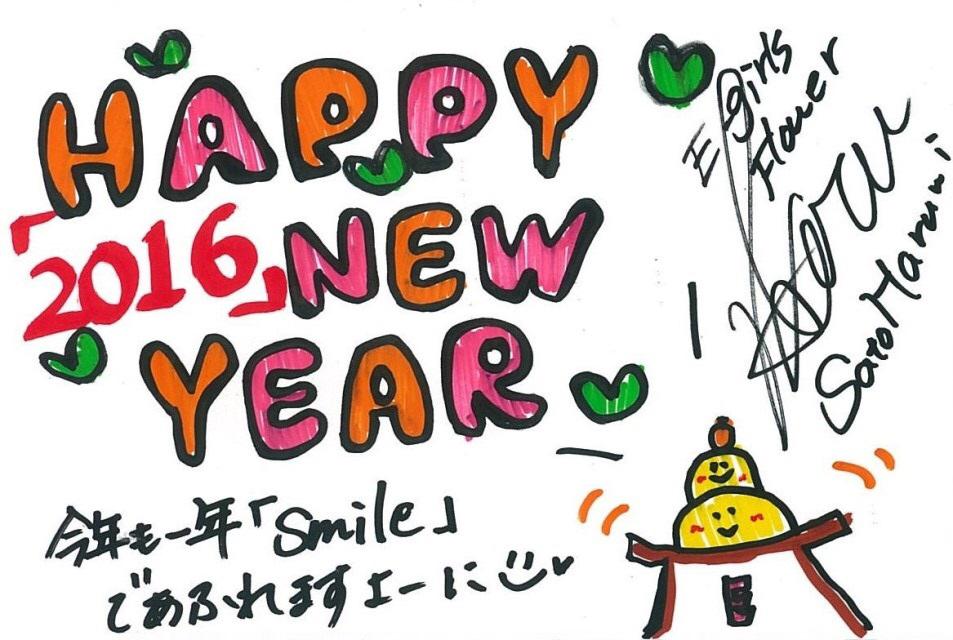 HAPPY
「2016」NEW
YEAR
E girls
Flower
Harumi
Sato Harumi
今年も一年「Smile」
であふれますよーに